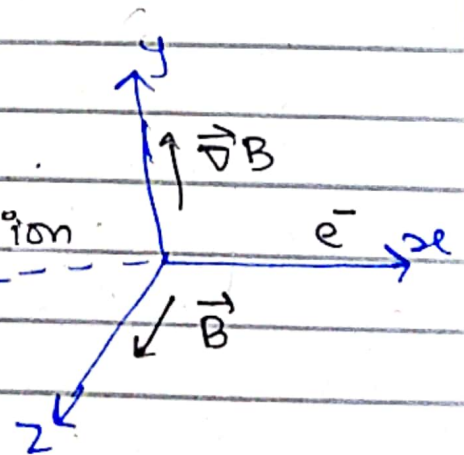 y
∇⃗B
ion
e⁻
x
B⃗
z